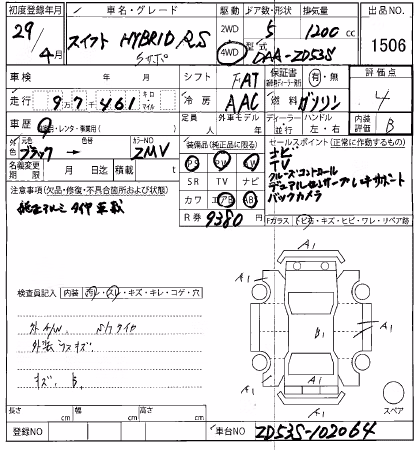 初度登録年月 車名・グレード 駆動 ドア数・形状 排気量 出品NO.
29/4月 スイフト HYBRID RS 2WD 4WD 5 1200cc 1506
型式 DAA-ZD53S
車検 年 月 シフト FAT 保証書 有・無 評価点 4
走行 97461 キロ マイル 冷房 AAC 燃料 ガソリン
車歴 自家用・レンタ・事業用( ) 定員 人 外車モデル 年 ディーラー 並行 ハンドル 左・右 内装 評価 B
外色 元色 ブラック→ 色替 カラーNO ZMV 装備品(純正品に限る) セールスポイント(正常に作動するもの)
名義変更期限 月 日迄 積載 t PS PW ナビ
SR TV ナビ
カワ エアB AB
R券 9380円
TV
クルーズコントロール
デュアルセンサーブレーキサポート
バックカメラ
注意事項(欠品・修復・不具合箇所および状態)
純正アルミ タイヤ 車載
Fガラス トビ石・キズ・ヒビ・ワレ・リペア跡
検査員記入 内装 汚レ・スレ・キズ・キレ・コゲ・穴
外 A/W S/タイヤ
キズ
A1
A1
A1
B1
A1
A1
A1
A1
スペア
長さ cm 幅 cm 高さ cm
登録NO 車台NO ZD53S-102064